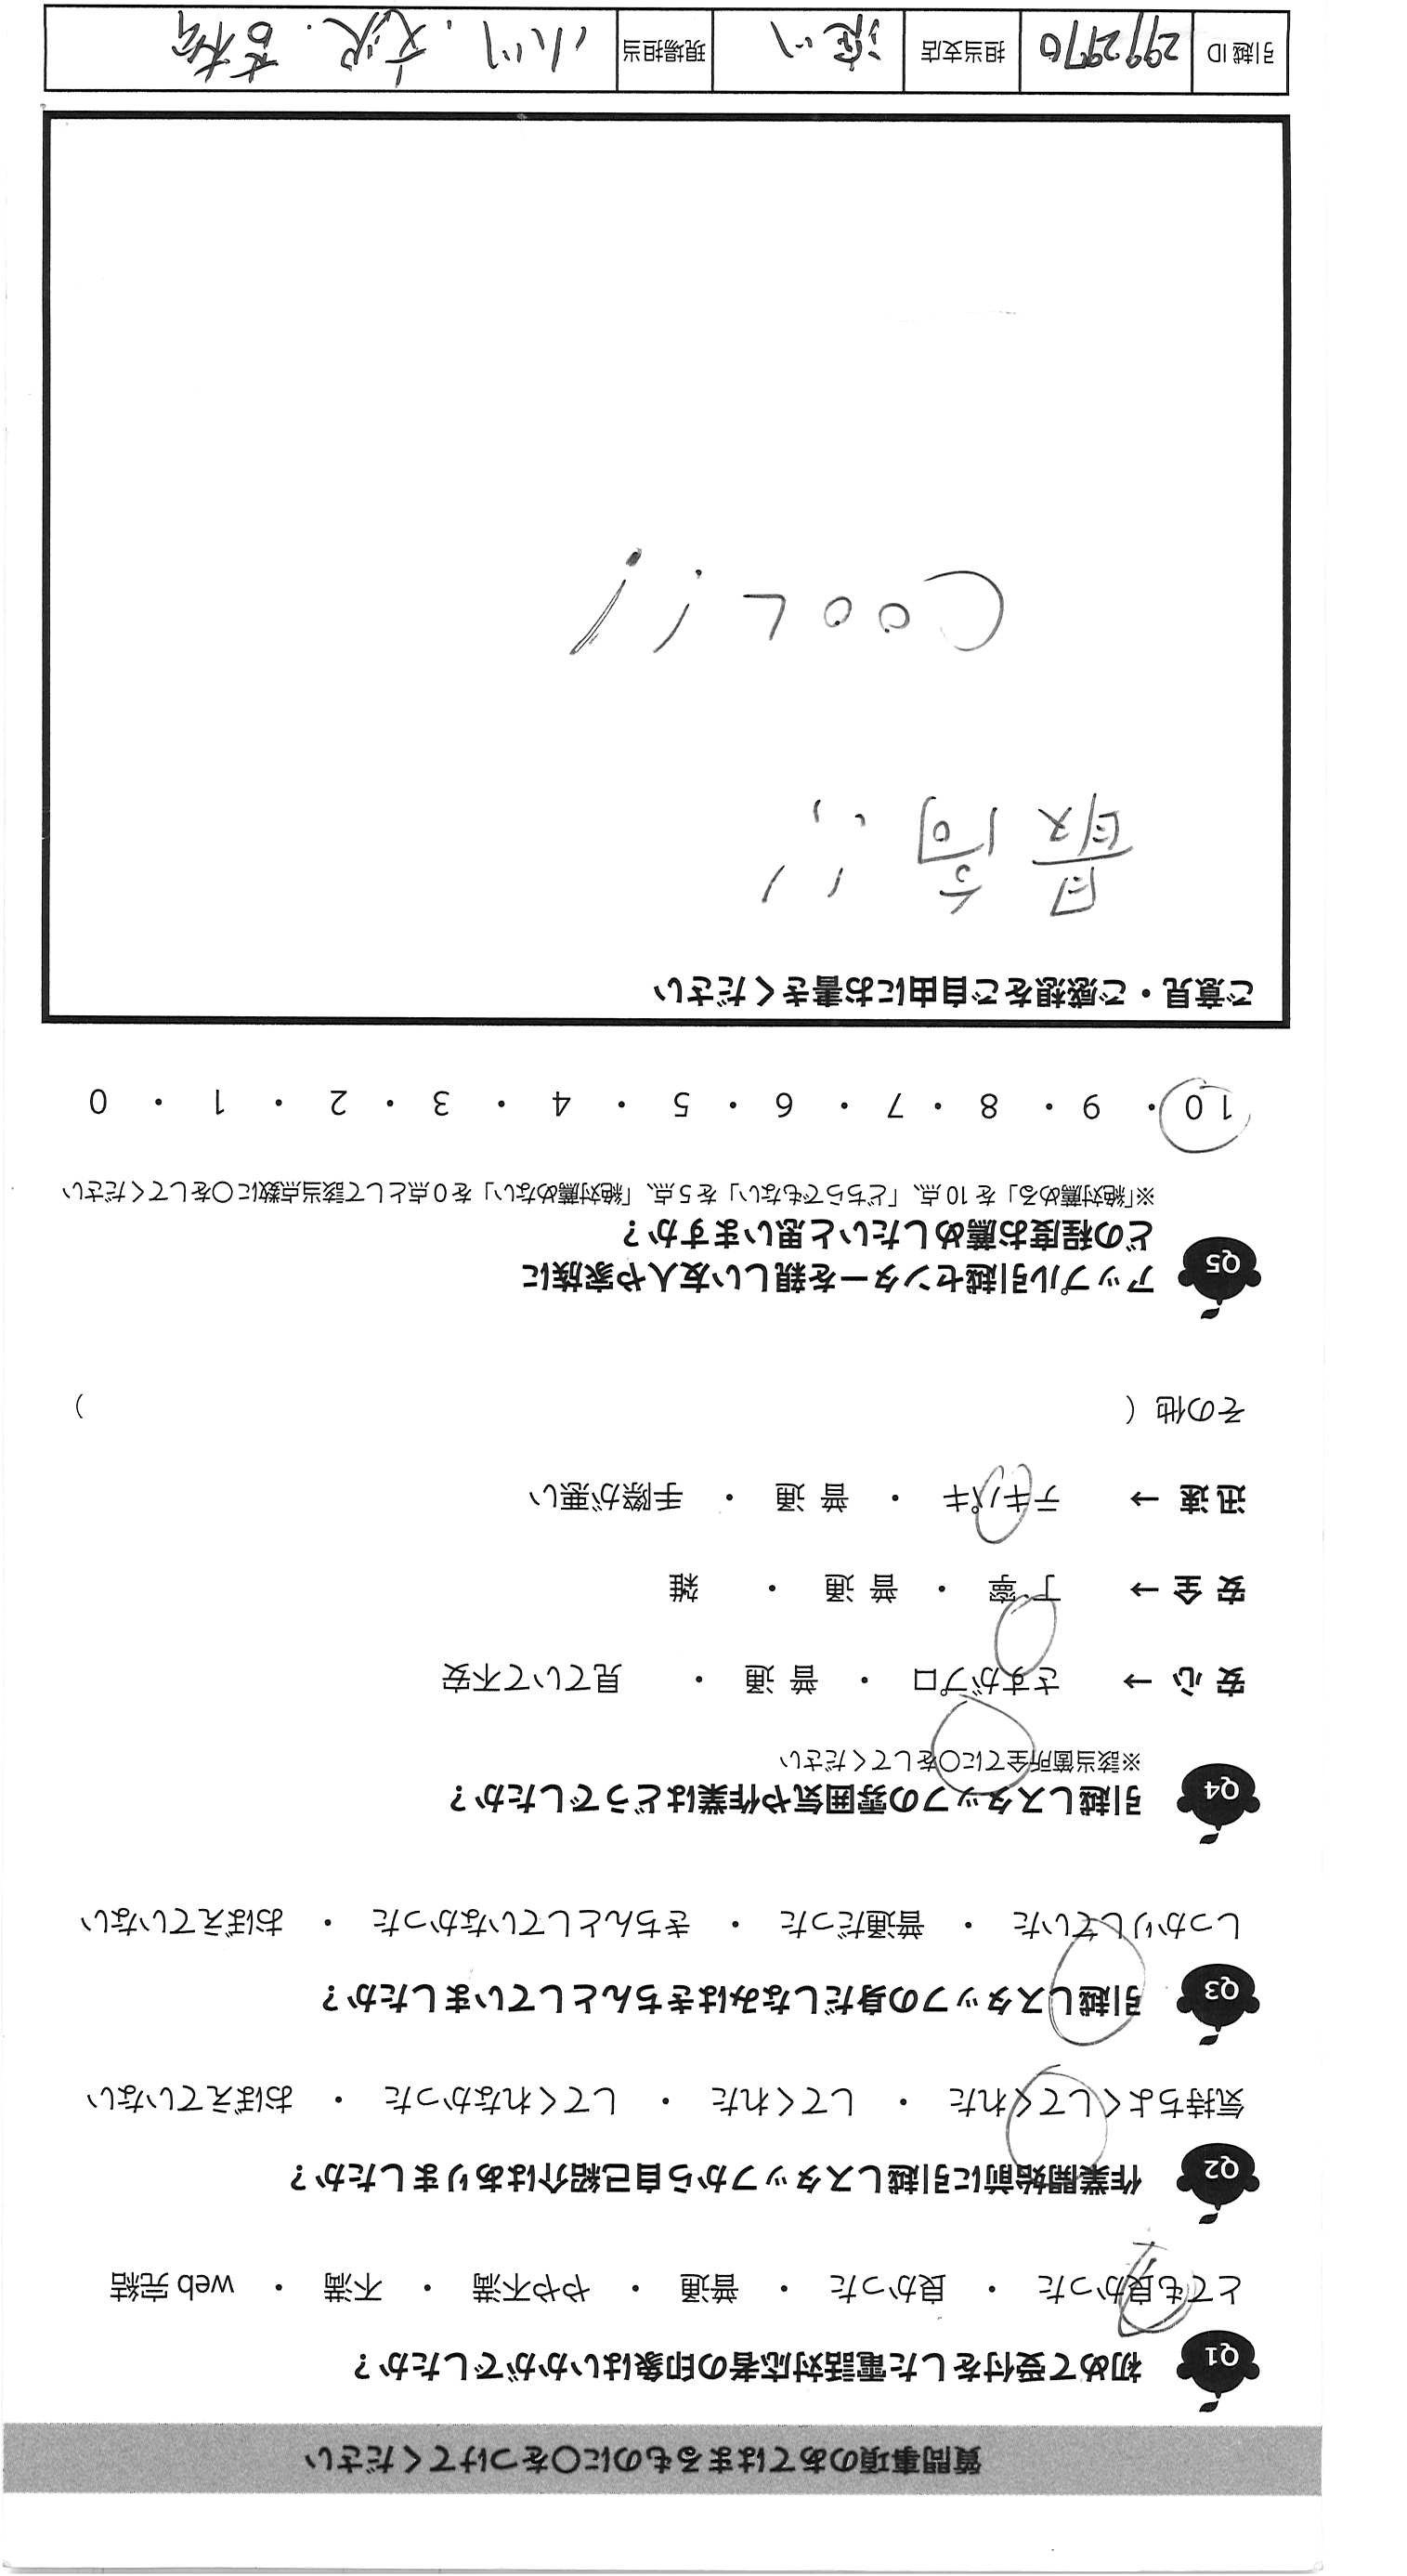 質問事項のあてはまるものに○をつけてください
Q1 初めて受付をした電話対応者の印象はいかがでしたか？
とても良かった ・ 良かった ・ 普通 ・ やや不満 ・ 不満 ・ web 完結
Q2 作業開始前に引越しスタッフから自己紹介はありましたか？
気持ちよくしてくれた ・ してくれた ・ してくれなかった ・ おぼえていない
Q3 引越しスタッフの身だしなみはきちんとしていましたか？
しっかりしていた ・ 普通だった ・ きちんとしていなかった ・ おぼえていない
Q4 引越しスタッフの雰囲気や作業はどうでしたか？
※該当箇所全てに○をしてください
安 心 → さすがプロ ・ 普 通 ・ 見ていて不安
安 全 → 丁 寧 ・ 普 通 ・ 雑
迅 速 → テキパキ ・ 普 通 ・ 手際が悪い
その他 （ ）
Q5 アップル引越センターを親しい友人や家族に
どの程度お薦めしたいと思いますか？
※「絶対薦める」を 10 点、「どちらでもない」を 5 点、「絶対薦めない」を 0 点として該当点数に○をしてください
10 ・ 9 ・ 8 ・ 7 ・ 6 ・ 5 ・ 4 ・ 3 ・ 2 ・ 1 ・ 0
ご意見・ご感想をご自由にお書きください
最高!!
COOL!!
引越 ID 2992970 担当支店 現場担当 小川.